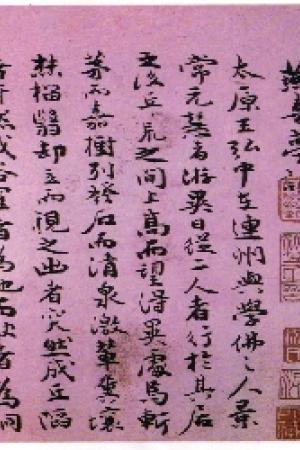 太原王弘中在連州與學佛之人景
常元慧者游異日從二人者行於其居
之後丘荒之間上高而望得異處焉斬
茅而嘉樹列發石而清泉激輦糞壤
燔椔翳却立而視之出者突然成丘陷
者呀然成谷窪者為池而缺者為洞